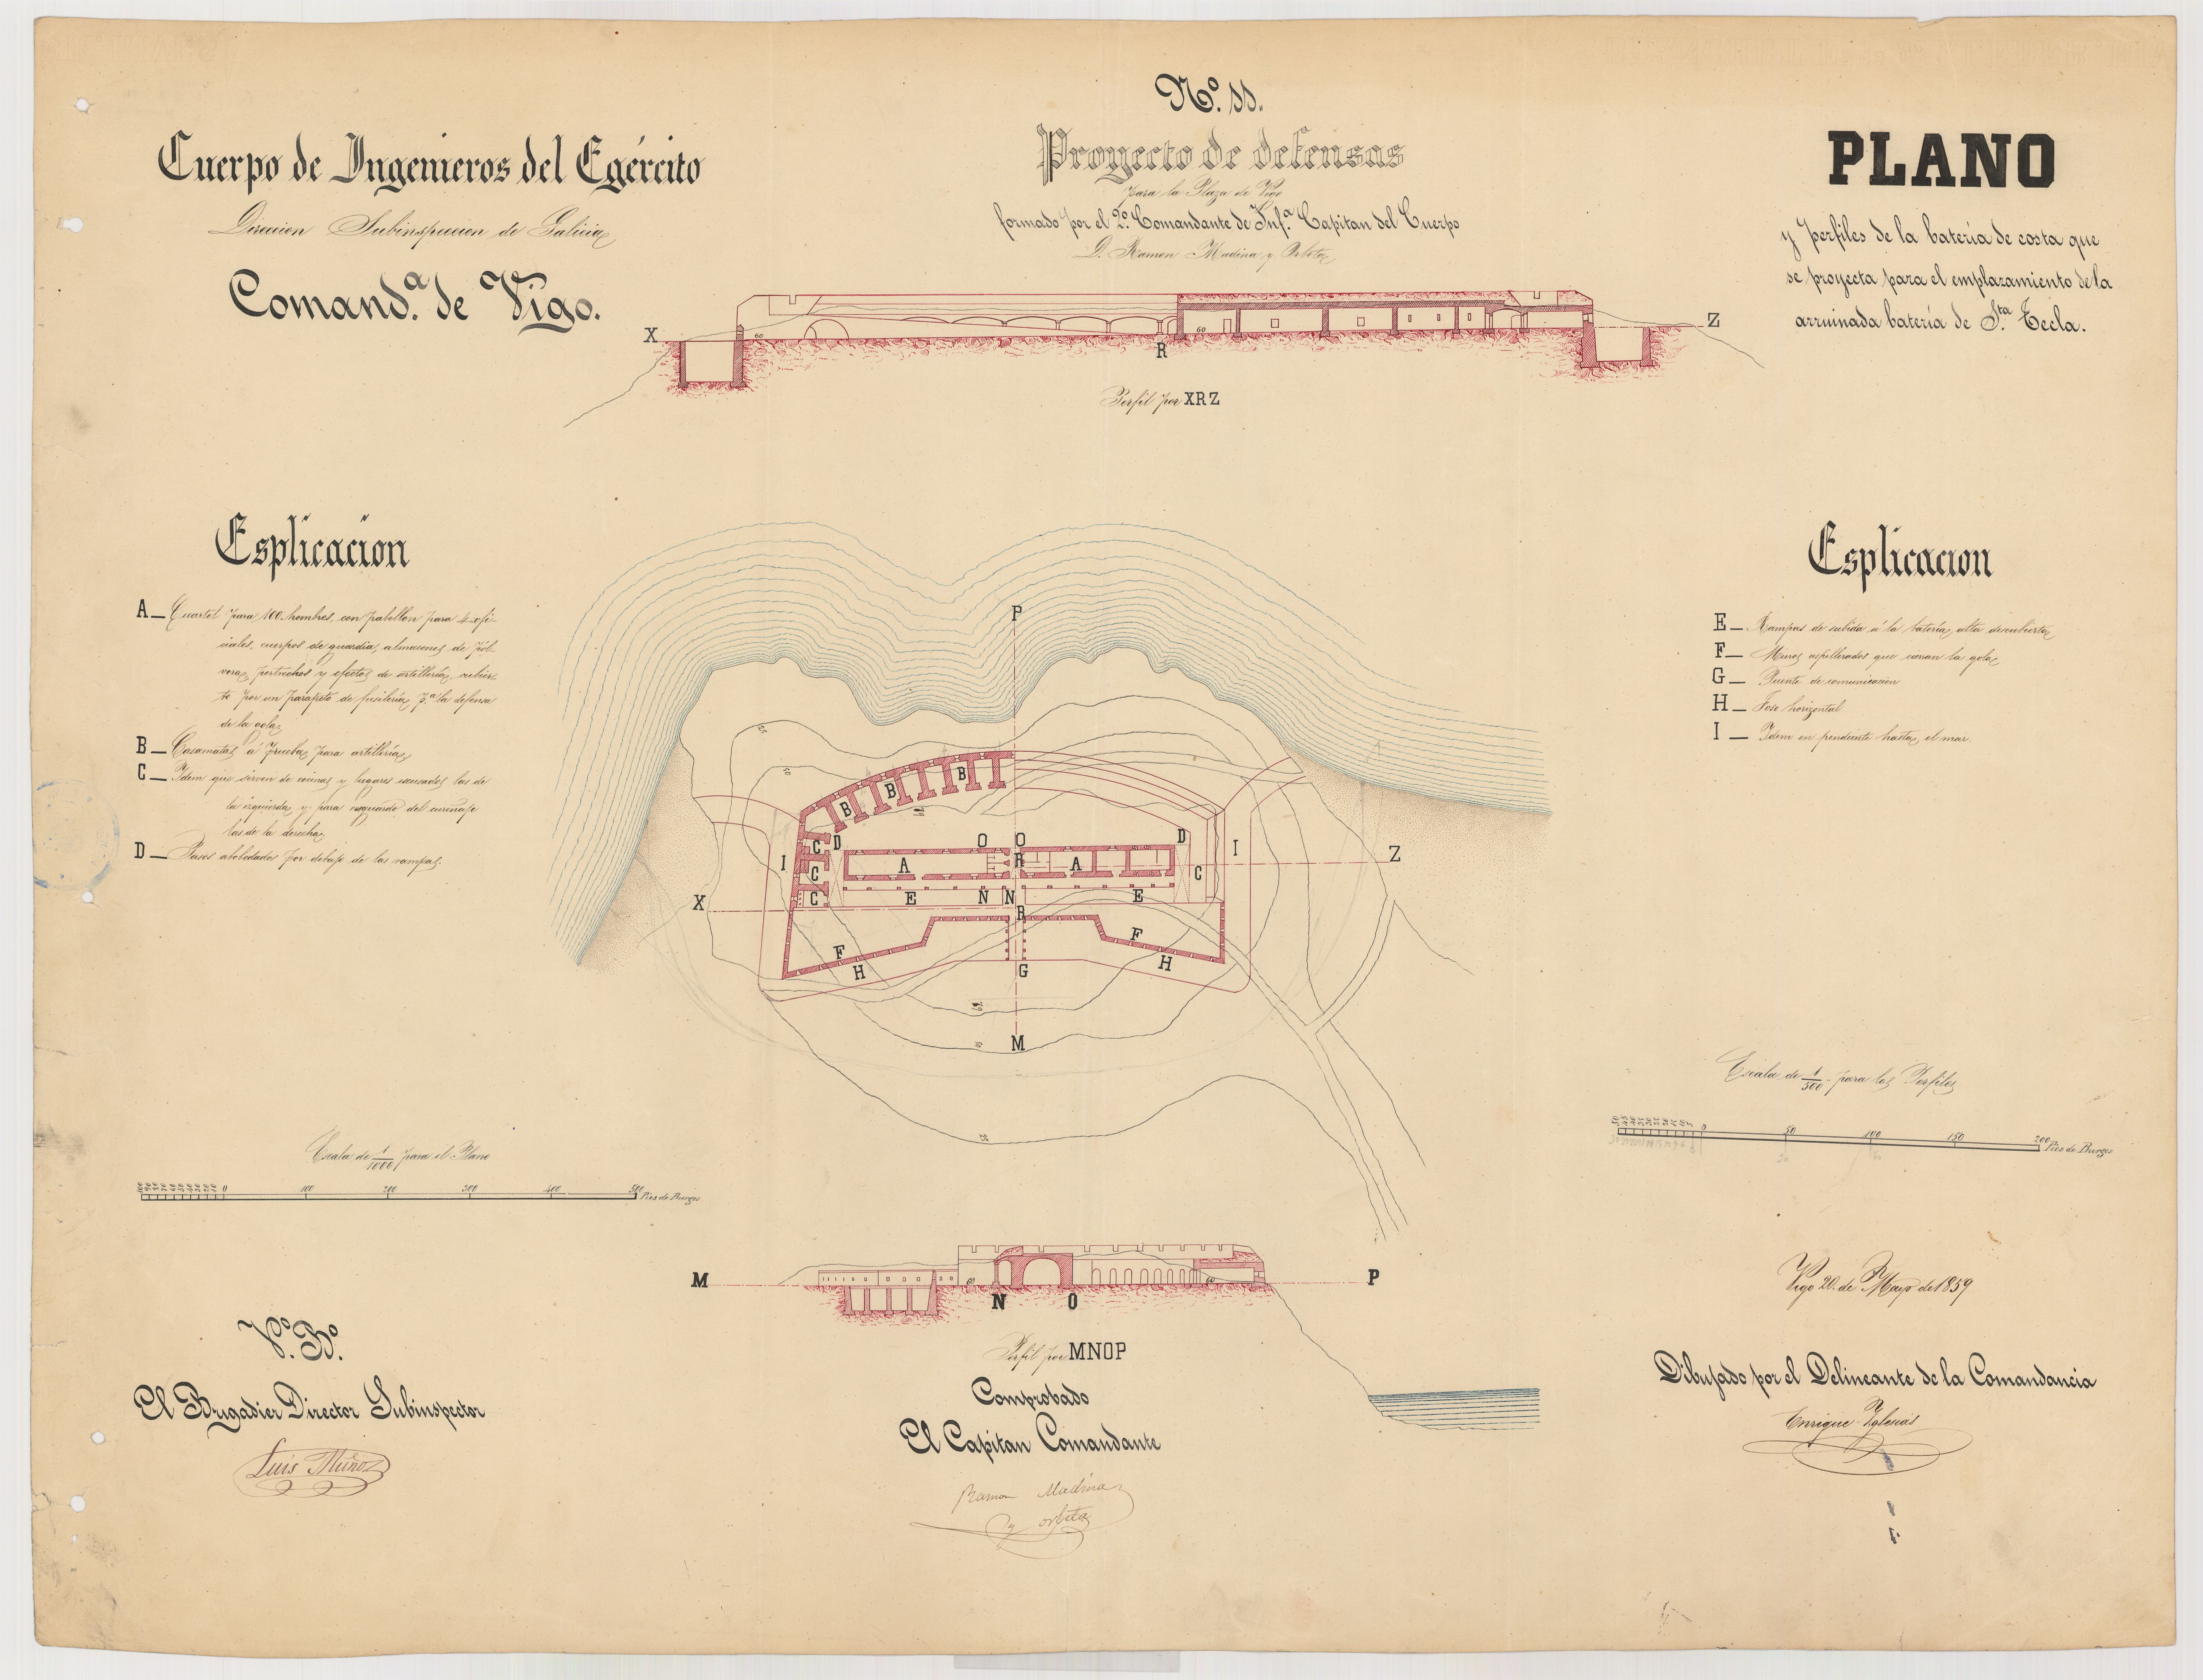 Cuerpo de Ingenieros del Egército
Direccion Subinspeccion de Galicia
Comand.ª de Vigo.
Nº. 11.
Proyecto de defensas
para la Plaza de Vigo
formado por el 2º. Comandante de Inf.ª Capitan del Cuerpo
D. Ramon Madina y Orbeta
PLANO
y perfiles de la batería de costa que
se proyecta para el emplazamiento de la
arruinada batería de Sta Tecla.
X
60
60
R
Z
Perfil por XRZ
Esplicacion
A_ Cuartel para 100 hombres, con pabellon para 4 ofi-
ciales, cuerpos de guardia, almacenes de pól-
vora, pertrechos y efectos de artillería, cubier-
to por un parapeto de fusilería p.ª la defensa
de la gola
B_ Casamatas á prueba para artillería
C_ Idem que sirven de cocinas y lugares escusados las de
la izquierda y para resguardo del cureñage
las de la derecha
D_ Pasos abobedados por debajo de las rampas.
Esplicacion
E_ Rampas de subida á la batería alta descubierta
F_ Muros aspillerados que cierran la gola
G_ Puente de comunicacion
H_ Foso horizontal
I_ Idem en pendiente hasta el mar.
P
B
B
B
C
D
O
O
D
I
A
R
A
I
Z
C
C
X
C
E
N
N
E
R
F
F
H
G
H
M
Escala de 1/1000 para el Plano
100 90 80 70 60 50 40 30 20 10 0 100 200 300 400 500 Pies de Burgos
Escala de 1/500 para los Perfiles
50 45 40 35 30 25 20 15 10 5 0 50 100 150 200 Pies de Burgos
M
60
60
P
N
O
Perfil por MNOP
Vigo 20 de Mayo de 1859
Vº. Bº.
El Brigadier Director Subinspector
Luis Muñoz
Comprobado
El Capitan Comandante
Ramon Madina
y Orbeta
Dibujado por el Delineante de la Comandancia
Enrique Yglesias